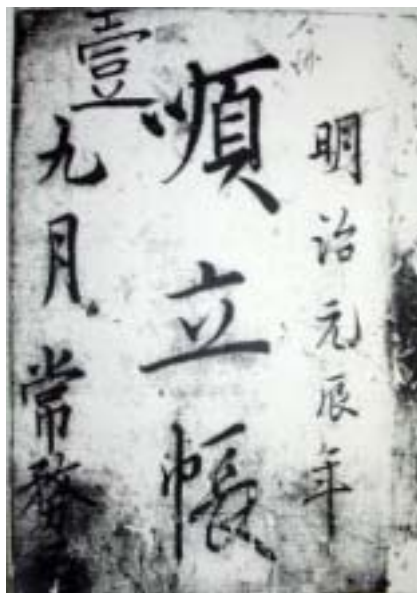 明治元辰年
順立帳
壹
九月 常務